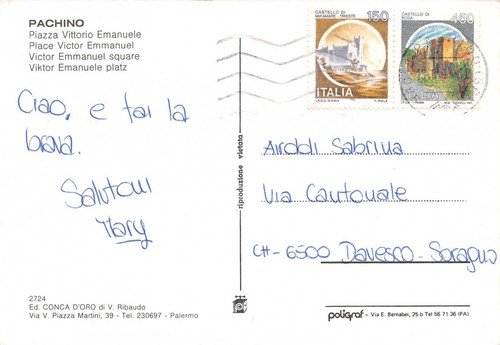 PACHINO
Piazza Vittorio Emanuele
Place Victor Emmanuel
Victor Emmanuel square
Viktor Emanuele platz
CASTELLO DI
MIRAMARE - TRIESTE
150
ITALIA
I.P.Z.S. - ROMA
CASTELLO DI
450
Ciao, e fai la
brava.
Salutoni
Mary
riproduzione vietata
Airoldi Sabrina
Via Cantonale
CH-6500 Davesco-Soragno
2724
Ed. CONCA D'ORO di V. Ribaudo
Via V. Piazza Martini, 39 - Tel. 230697 - Palermo
poligraf - Via E. Bernabei, 25-b Tel 56 71 36 (PA)